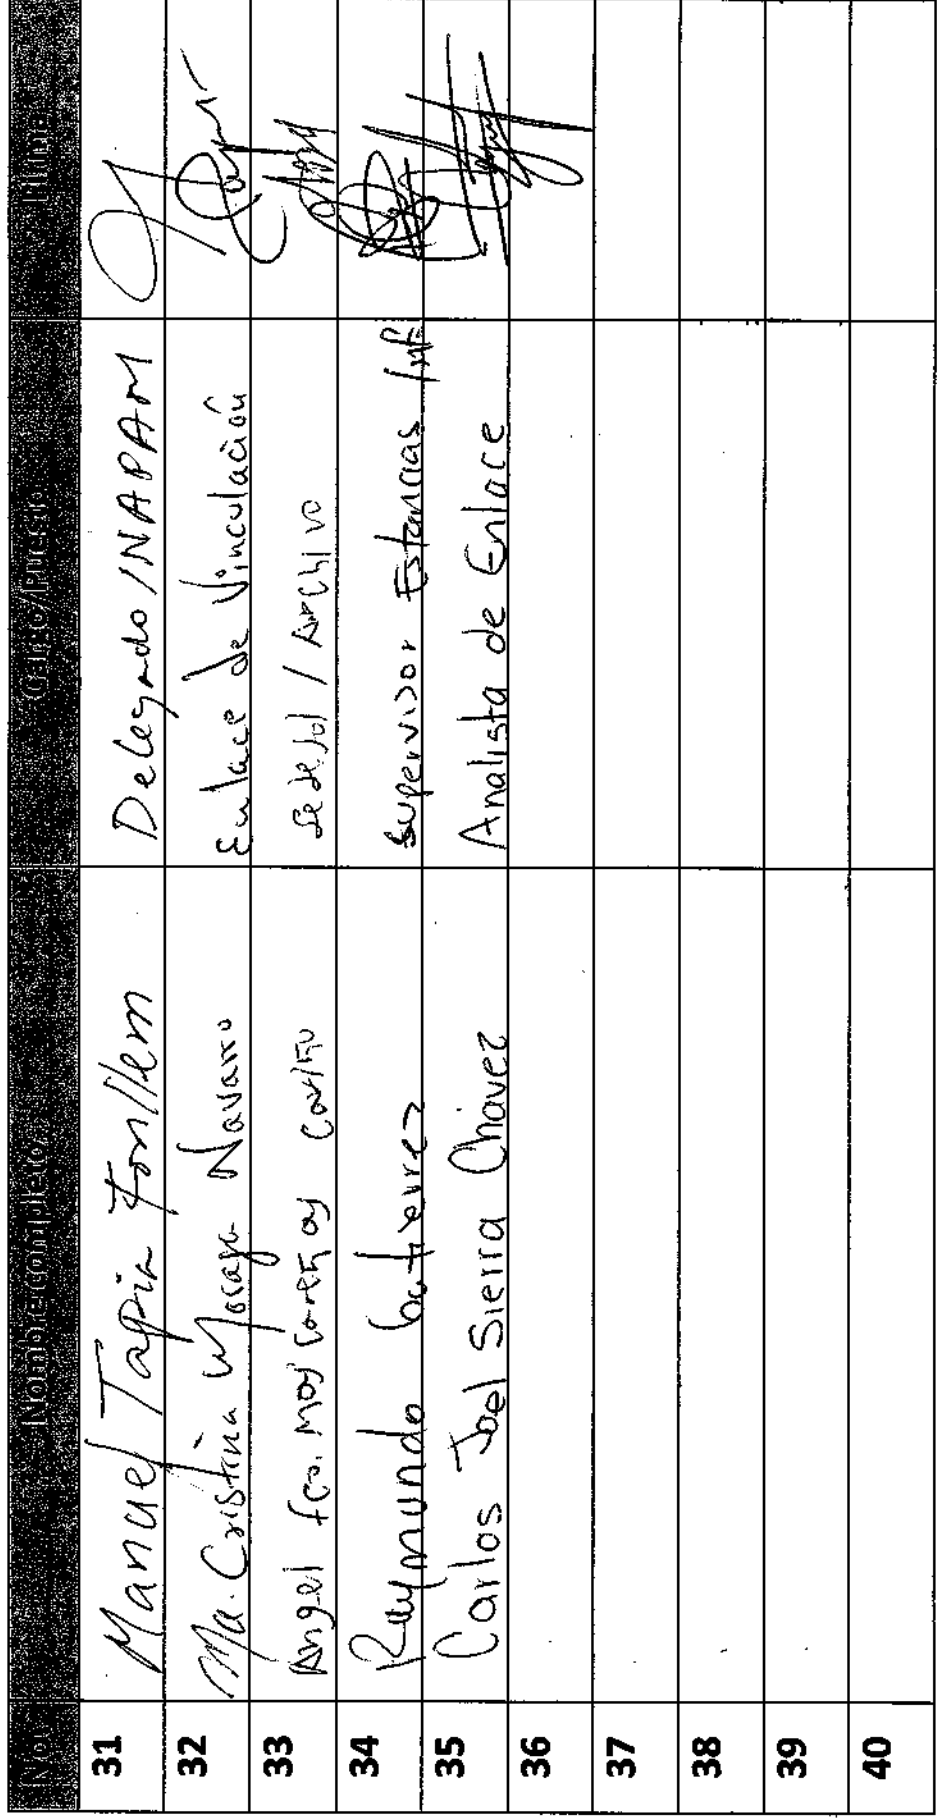 No. Nombre completo Cargo/Puesto Firma
31 Manuel Tapia Fonllem Delegado INAPAM
32 Ma. Cristina Moraga Navarro Enlace de Vinculación
33 Angel fco. Sedesol / Archivo
34 Raymundo Gutierrez Supervisor Estancias Inf
35 Carlos Joel Sierra Chávez Analista de Enlace
36
37
38
39
40